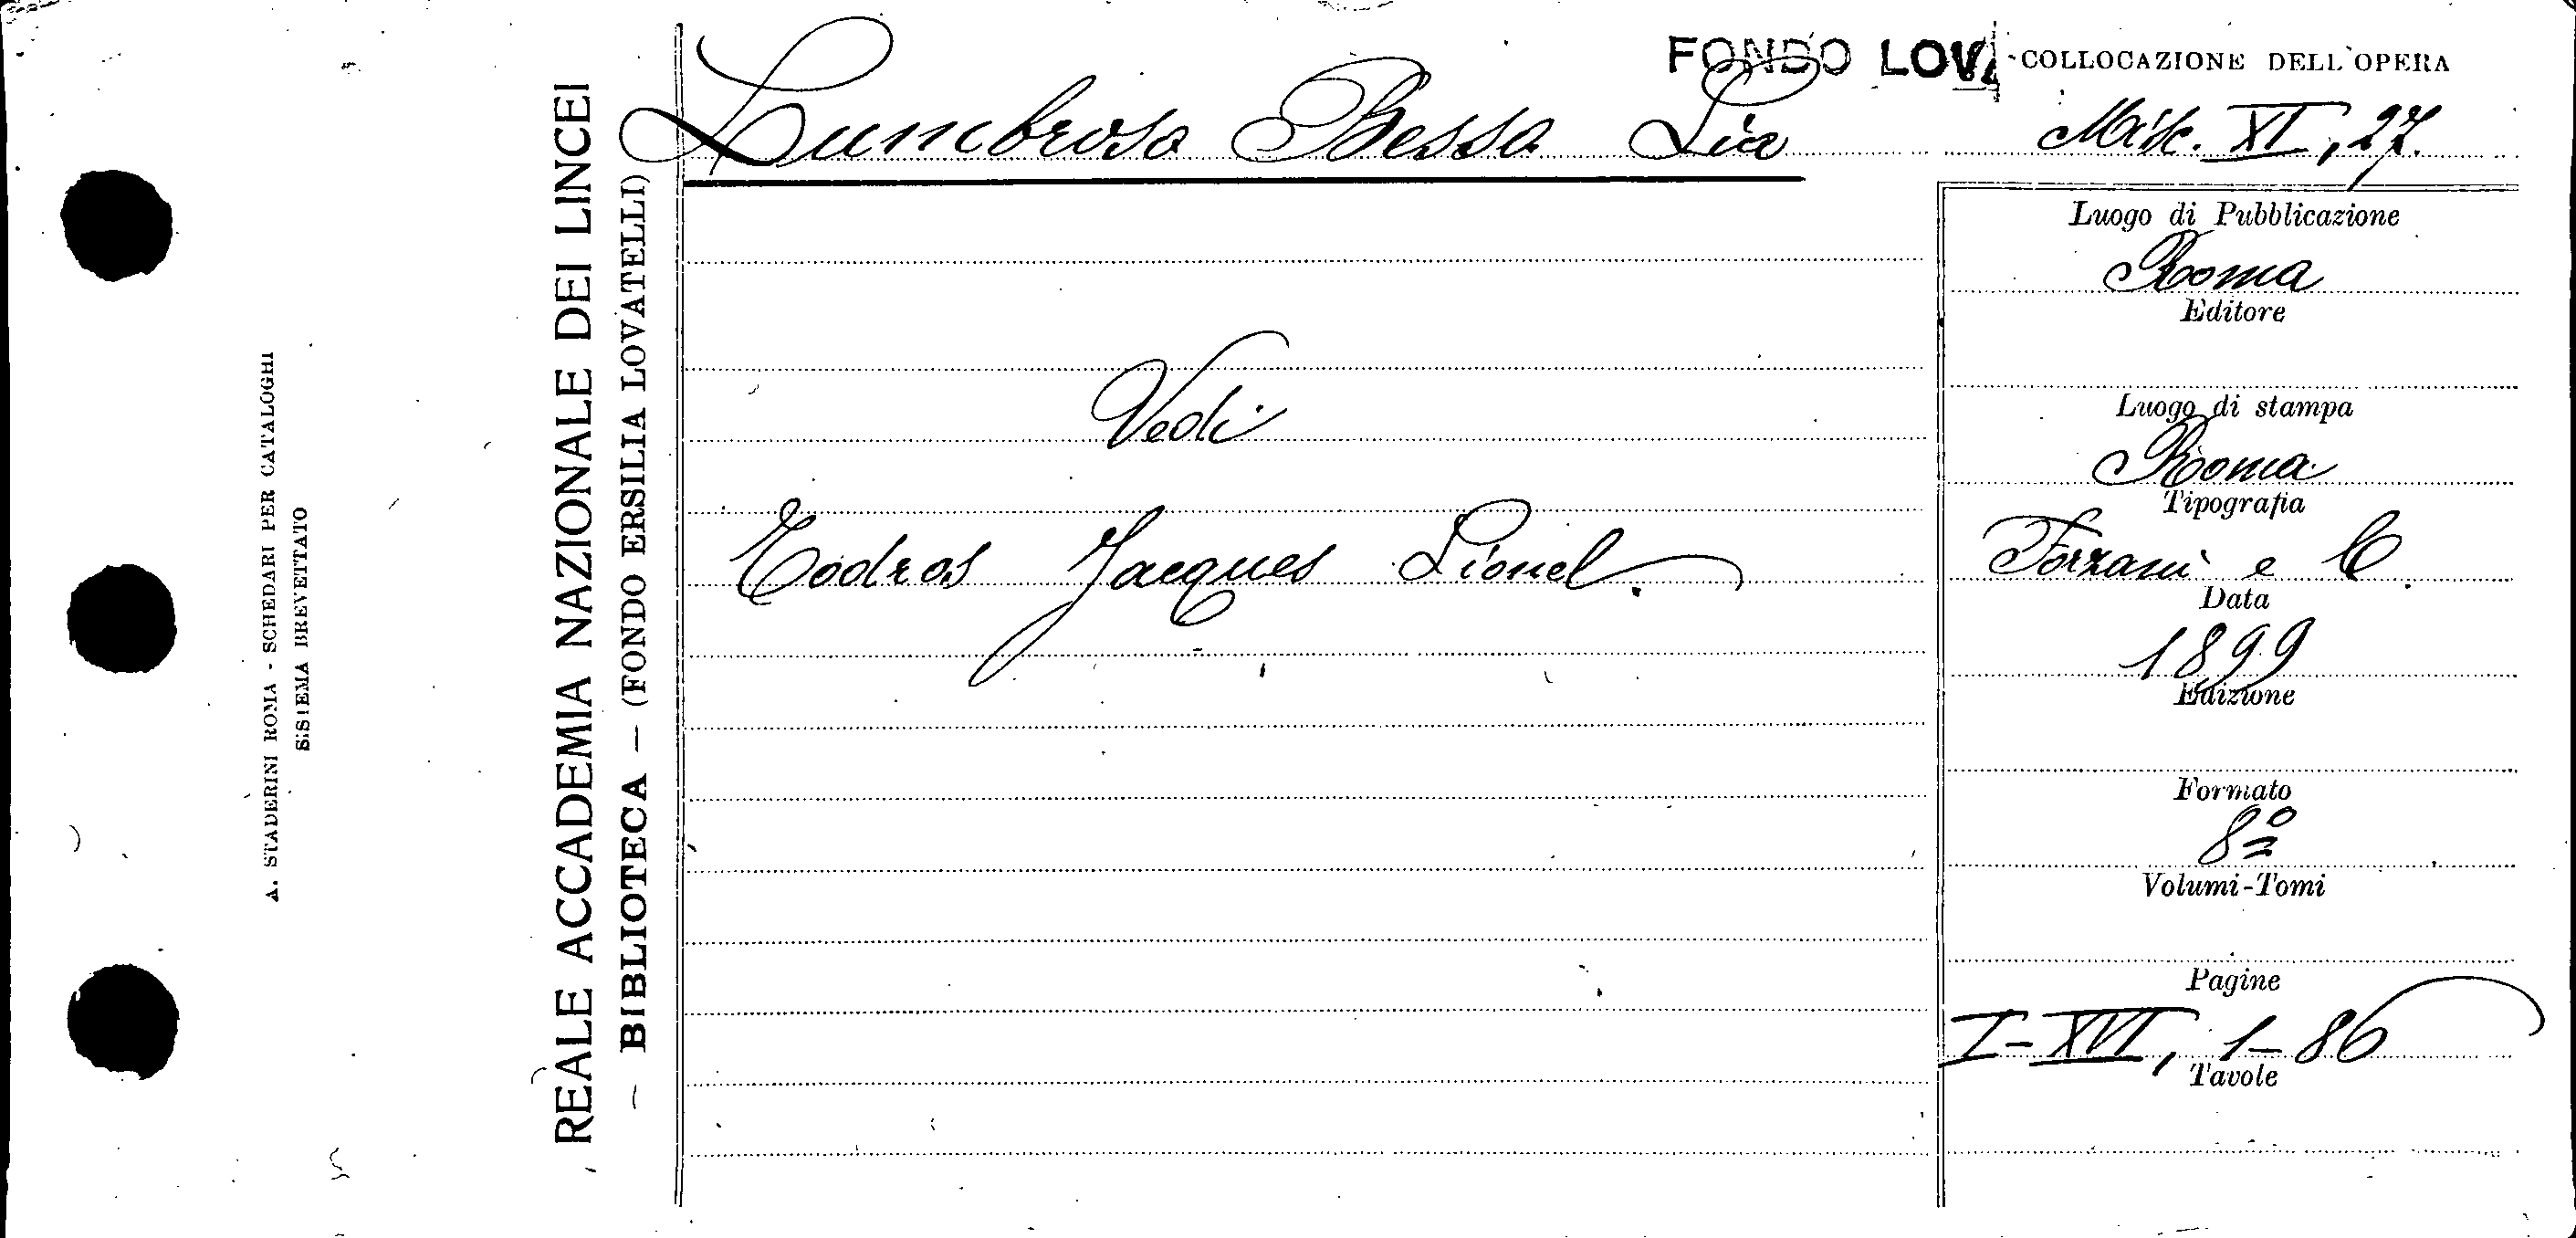 FONDO LOVA
COLLOCAZIONE DELL'OPERA
Lumbroso Bessa Lia
Misc. XI, 27.
Luogo di Pubblicazione
Roma
Editore
Vedi
Luogo di stampa
Roma
Tipografia
Todros Jacques Lionel.
Forzani e C.
Data
1899
Edizione
Formato
8º
Volumi-Tomi
Pagine
I-XVI, 1-86
Tavole
REALE ACCADEMIA NAZIONALE DEI LINCEI
— BIBLIOTECA — (FONDO ERSILIA LOVATELLI)
A. STADERINI ROMA - SCHEDARI PER CATALOGHI
SISTEMA BREVETTATO